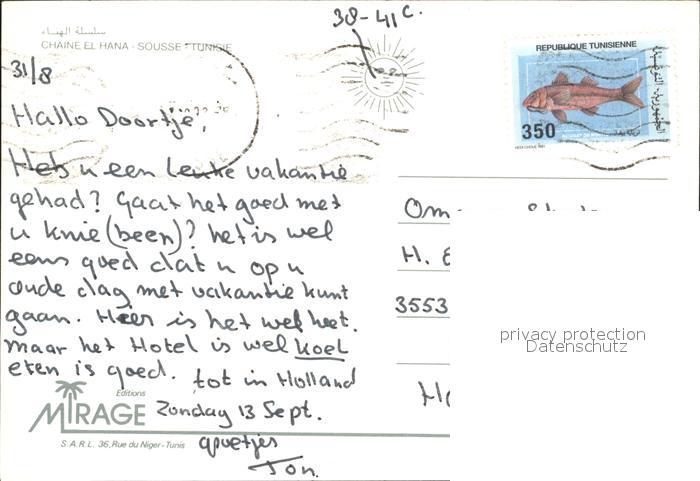 38-41 C.
سلسلة الهناء
CHAINE EL HANA - SOUSSE - TUNISIE
31/8
Hallo Doortje,
Heb u een leuke vakantie
gehad? Gaat het goed met
u knie (been)? het is wel
eens goed dat u op u
oude dag met vakantie kunt
gaan. Heer is het wel heet.
maar het Hotel is wel koel
eten is goed. tot in Holland
Zondag 13 Sept.
groetjes
Ton.
Editions
MIRAGE
S.A.R.L. 36, Rue du Niger - Tunis
REPUBLIQUE TUNISIENNE
350
H.
3553
privacy protection
Datenschutz